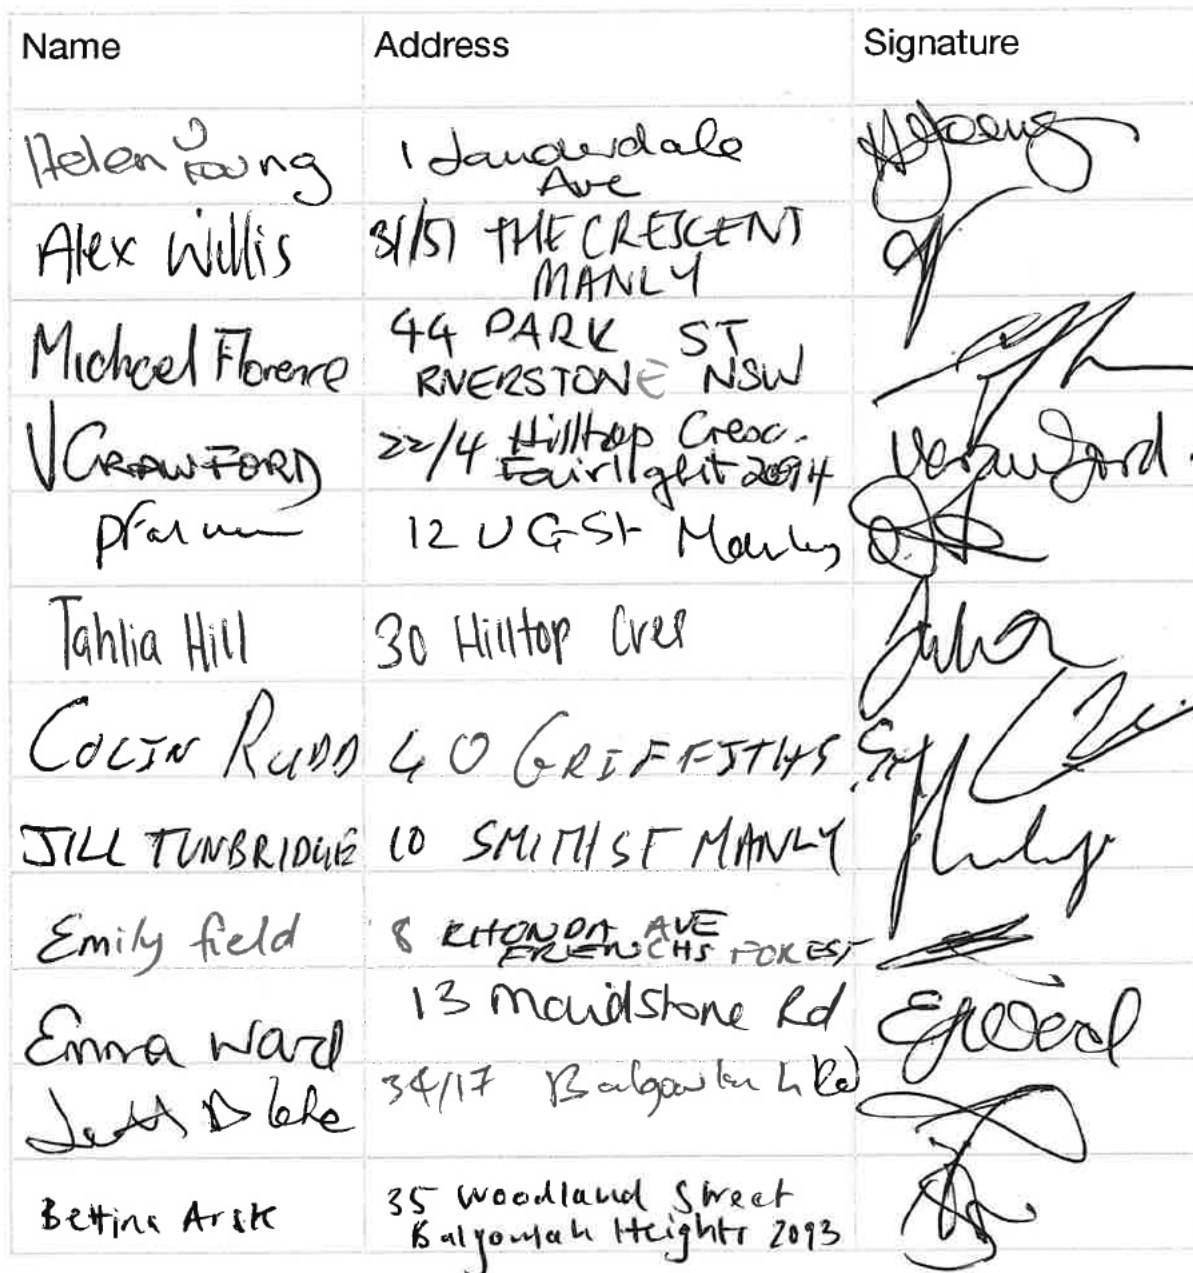 Name Address Signature
Helen Young 1 Lauderdale
Ave
Alex Willis 31/51 THE CRESCENT
MANLY
Michael Florence 44 PARK ST
RIVERSTONE NSW
V CRAWFORD 22/4 Hilltop Cresc.
Fairlight 2094
VCrawford.
12 St Manly
Tahlia Hill 30 Hilltop Cres
COLIN RUDD 40 GRIFFITHS St
JILL TUNBRIDGE 10 SMITH ST MANLY
Emily field 8 RHONDA AVE
FRENCHS FOREST
Emma Ward 13 Maidstone Rd
Blake 34/17 Rd
Bettina 35 Woodland Street
Balgowlah Heights 2093